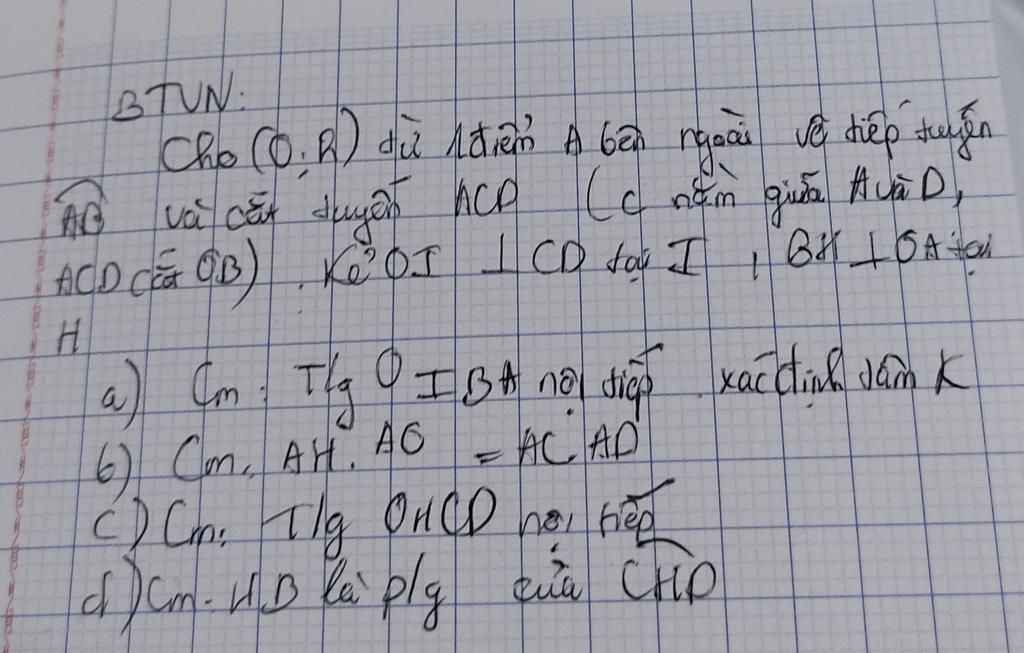 BTVN:
Cho (O; R) từ 1 điểm A bên ngoài vẽ tiếp tuyến
AB và cắt tuyến ACD (C nằm giữa A và D,
ACD cắt OB). Kẻ OI ⊥ CD tại I, BH ⊥ OA tại
H
a) Cm: T/g OIBA nội tiếp xác định tâm K
b) Cm. AH. AO = AC AD
c) Cm: T/g OHCD nội tiếp
d) Cm. HB là p/g của CHD